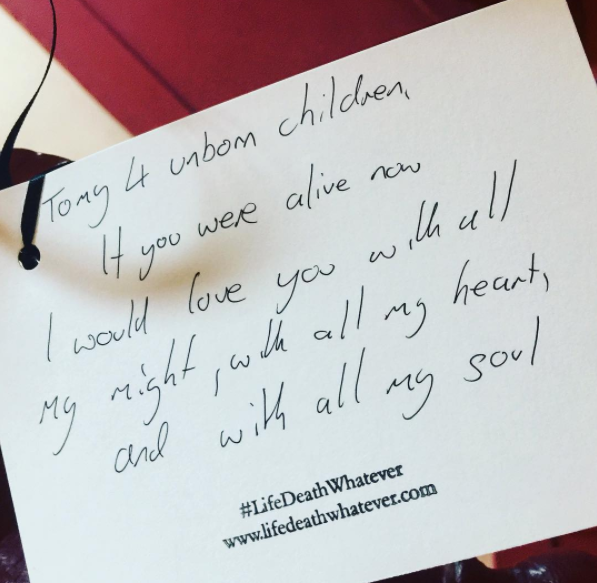 To my 4 unborn children,
If you were alive now
I would love you with all
my might, with all my heart,
and with all my soul
#LifeDeathWhatever
www.lifedeathwhatever.com